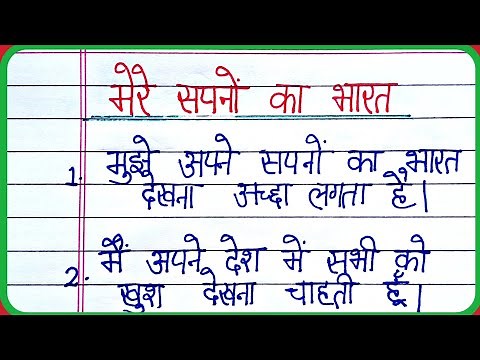 मेरे सपनों का भारत
1. मुझे अपने सपनों का भारत
देखना अच्छा लगता है।
2. मैं अपने देश में सभी को
खुश देखना चाहती हूँ।